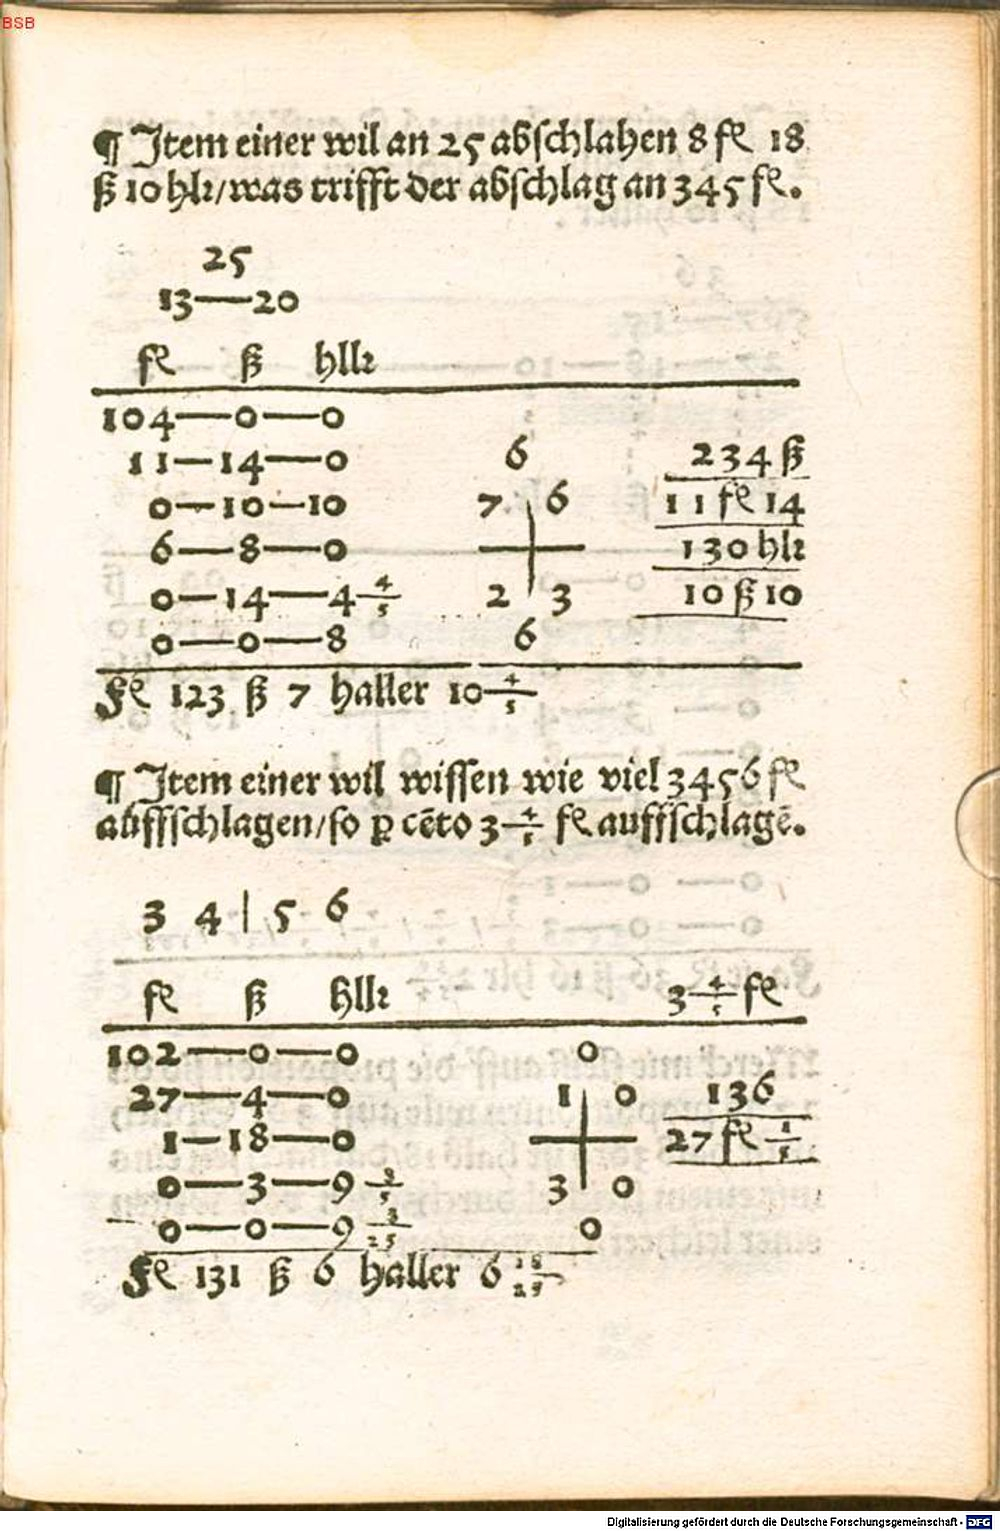 BSB
¶ Item einer wil an 25 abschlahen 8 fl 18
ß 10 hlr/was trifft der abschlag an 345 fl.
25
13—20
fl ß hllr
104—0—0
11—14—0 6 234 ß
0—10—10 7 6 11 fl 14
6—8—0 130 hlr
0—14—4 4/5 2 3 10 ß 10
0—0—8 6
Fl 123 ß 7 haller 10 4/5
¶ Item einer wil wissen wie viel 3456 fl
auffschlagen/so ꝑ cēto 3 4/5 fl auffschlagē.
3 4 | 5 6
fl ß hllr 3 4/5 fl
102—0—0 0
27—4—0 1 0 136
1—18—0 27 fl 1/5
0—3—9 3/5 3 0
0—0—9 3/25 0
Fl 131 ß 6 haller 6 18/25
Digitalisierung gefördert durch die Deutsche Forschungsgemeinschaft - DFG